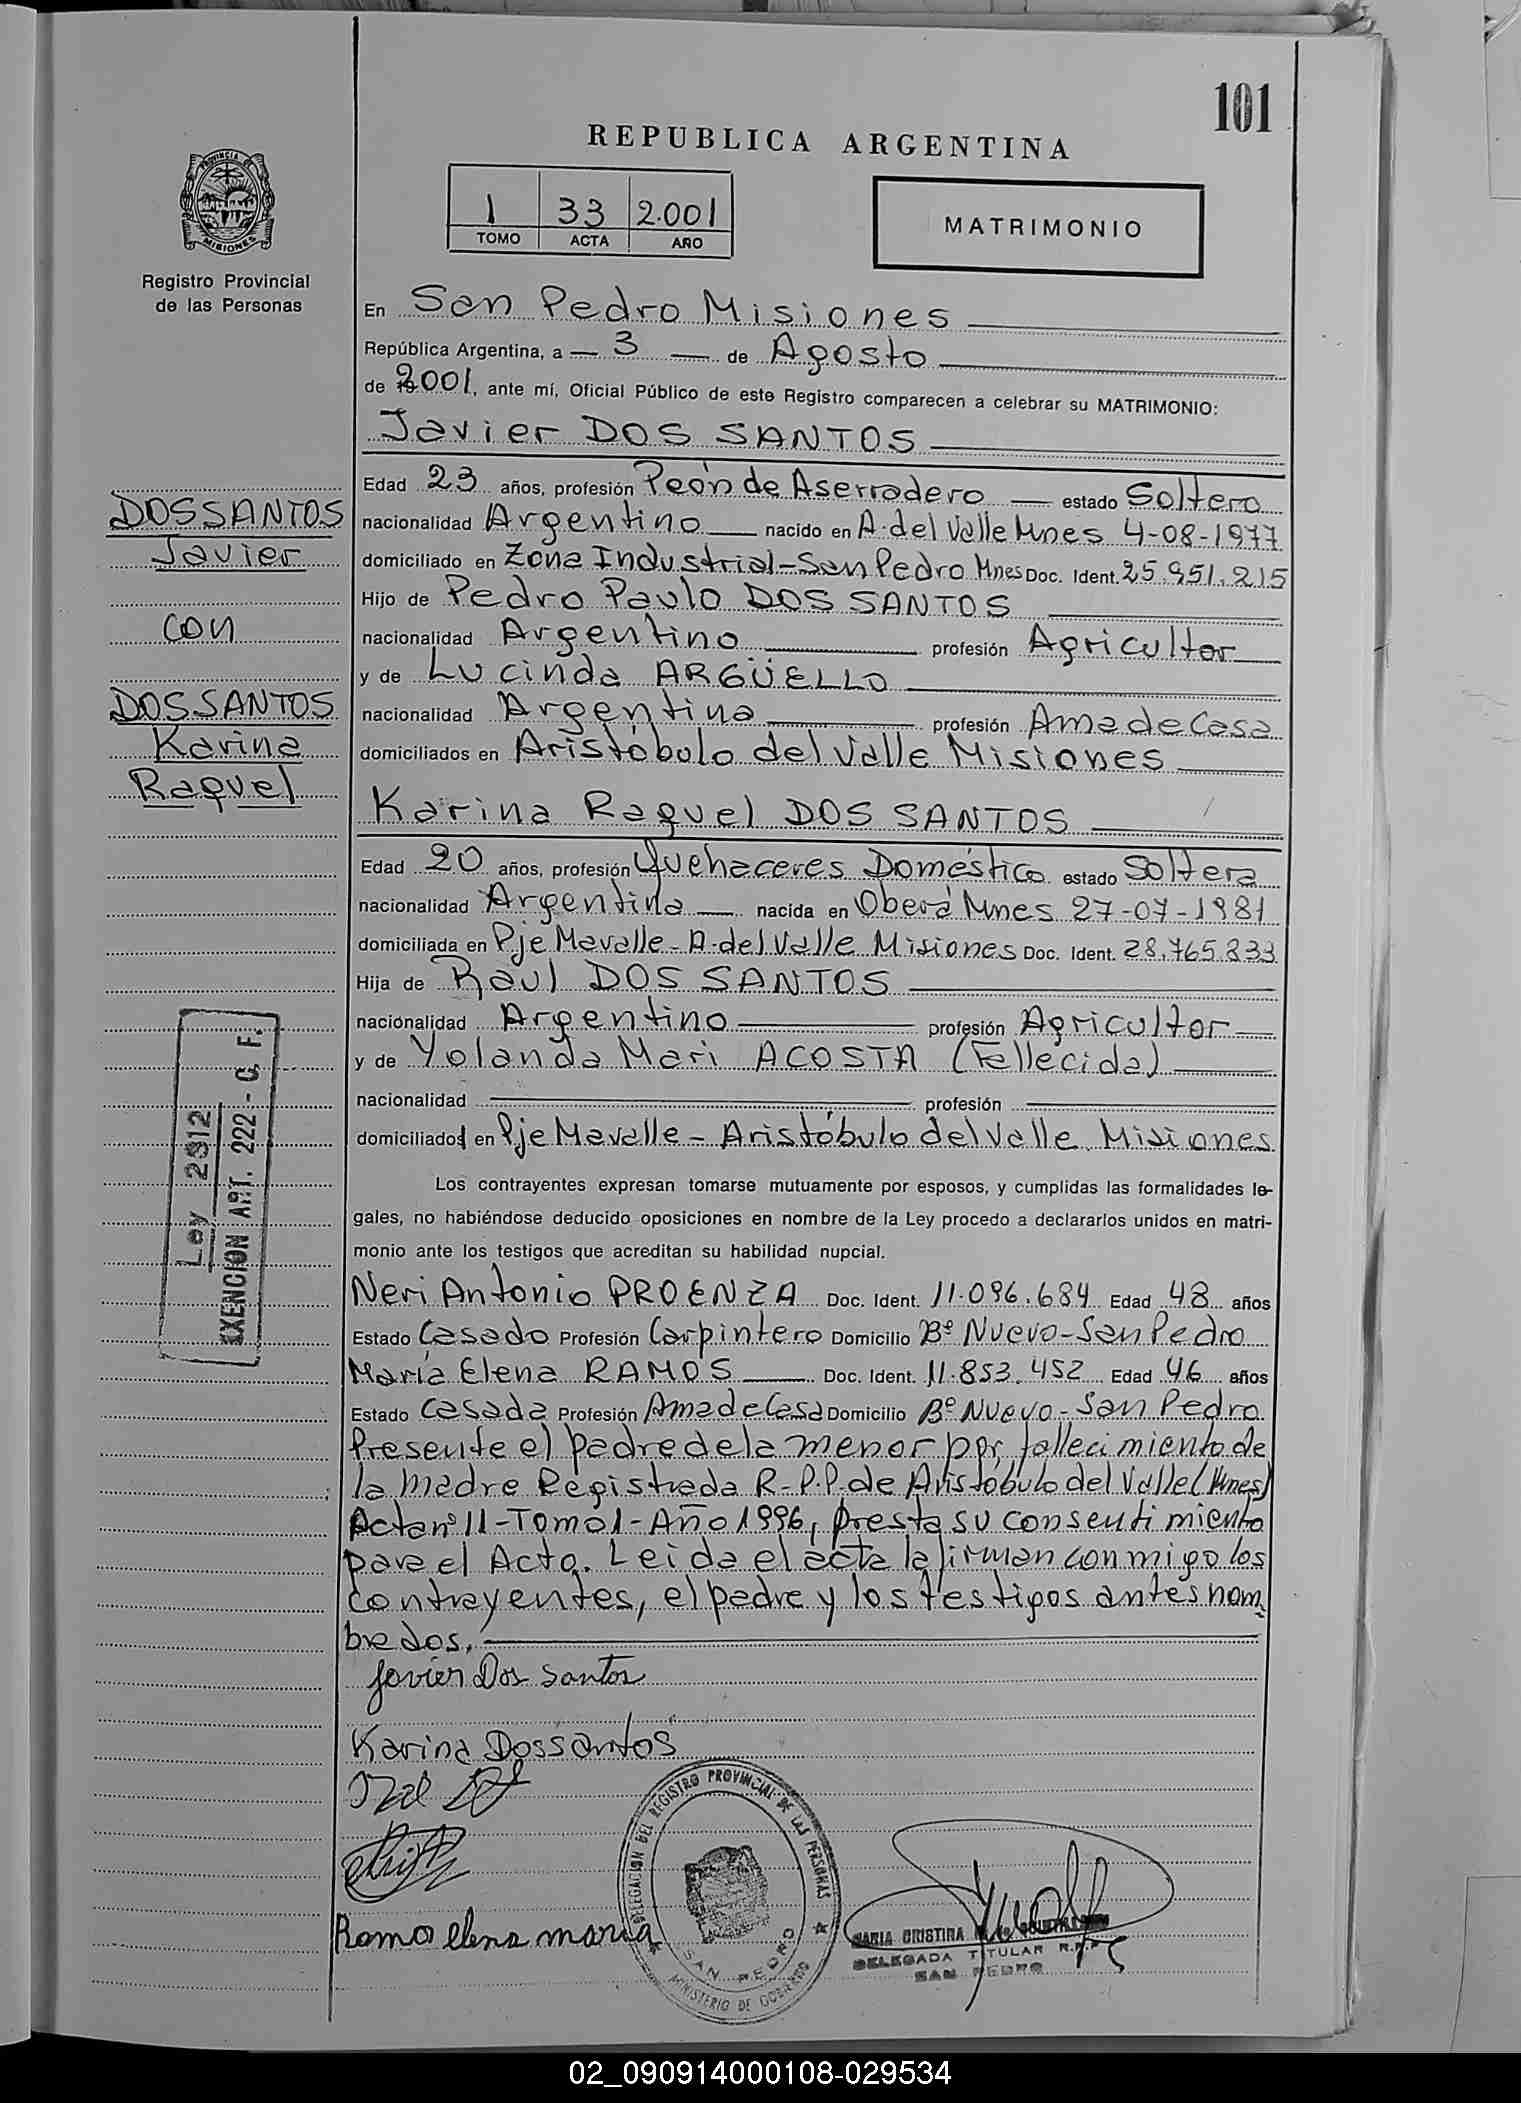 101
REPUBLICA ARGENTINA
1 33 2.001
TOMO ACTA AÑO
MATRIMONIO
PROVINCIA DE MISIONES
Registro Provincial
de las Personas
En San Pedro Misiones
República Argentina, a 3 de Agosto
de 2001, ante mí, Oficial Público de este Registro comparecen a celebrar su MATRIMONIO:
Javier DOS SANTOS
Edad 23 años, profesión Peón de Aserradero estado Soltero
nacionalidad Argentino nacido en A. del Valle Mnes 4-08-1977
domiciliado en Zona Industrial-San Pedro Mnes Doc. Ident. 25.951.215
Hijo de Pedro Paulo DOS SANTOS
nacionalidad Argentino profesión Agricultor
y de Lucinda ARGÜELLO
nacionalidad Argentina profesión Ama de Casa
domiciliados en Aristóbulo del Valle Misiones
DOS SANTOS
Javier
con
DOS SANTOS
Karina
Raquel
Karina Raquel DOS SANTOS
Edad 20 años, profesión Quehaceres Doméstico estado Soltera
nacionalidad Argentina nacida en Oberá Mnes 27-07-1981
domiciliada en Pje Mavalle-A. del Valle Misiones Doc. Ident. 28.765.833
Hija de Raúl DOS SANTOS
nacionalidad Argentino profesión Agricultor
y de Yolanda Mari ACOSTA (Fallecida)
nacionalidad profesión
domiciliados en Pje Mavalle - Aristóbulo del Valle Misiones
Ley 2312
EXENCION ART. 222 - C. F.
Los contrayentes expresan tomarse mutuamente por esposos, y cumplidas las formalidades le-
gales, no habiéndose deducido oposiciones en nombre de la Ley procedo a declararlos unidos en matri-
monio ante los testigos que acreditan su habilidad nupcial.
Neri Antonio PROENZA Doc. Ident. 11.096.684 Edad 48 años
Estado Casado Profesión Carpintero Domicilio Bº Nuevo-San Pedro
María Elena RAMOS Doc. Ident. 11.853.452 Edad 46 años
Estado Casada Profesión Ama de Casa Domicilio Bº Nuevo-San Pedro
Presente el padre de la menor por fallecimiento de
la madre Registrada R-P.P. de Aristóbulo del Valle (Mnes)
Acta nº 11-Tomo 1-Año 1996, presta su consentimiento
para el Acto. Leida el acta la firman conmigo los
contrayentes, el padre y los testigos antes nom-
brados.
Javier Dos Santos
Karina Dossantos
Ramo elena maria
DELEGACION DEL REGISTRO PROVINCIAL DE LAS PERSONAS
SAN PEDRO
MINISTERIO DE GOBIERNO
MARIA CRISTINA
DELEGADA TITULAR R.P.P.
SAN PEDRO
02_090914000108-029534